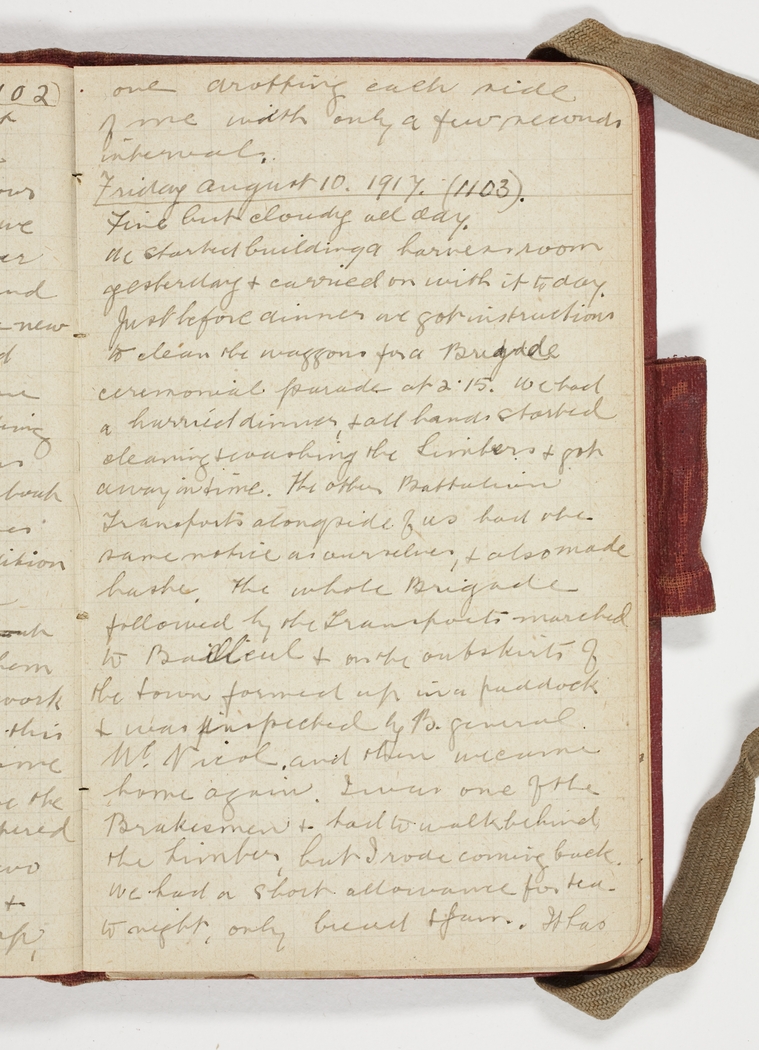 102)
one dropping each side
of me with only a few seconds
interval.
Friday August 10. 1917. (1103).
Fine but cloudy all day.
We started building a harness room
yesterday & carried on with it today.
Just before dinner we got instructions
to clean the waggons for a Brigade
ceremonial parade at 2.15. We had
a hurried dinner, & all hands started
cleaning & washing the limbers & got
away in time. The other Battalion
Transports alongside of us had the
same notice as ourselves, & also made
haste. The whole Brigade
followed by the Transports marched
to Bailleul & on the outskirts of
the town formed up in a paddock
& was inspected by B. General
McNicol, and then we came
home again. I was one of the
Brakesmen & had to walk behind
the limber, but I rode coming back.
We had a short allowance for tea
to night, only bread & jam. It has